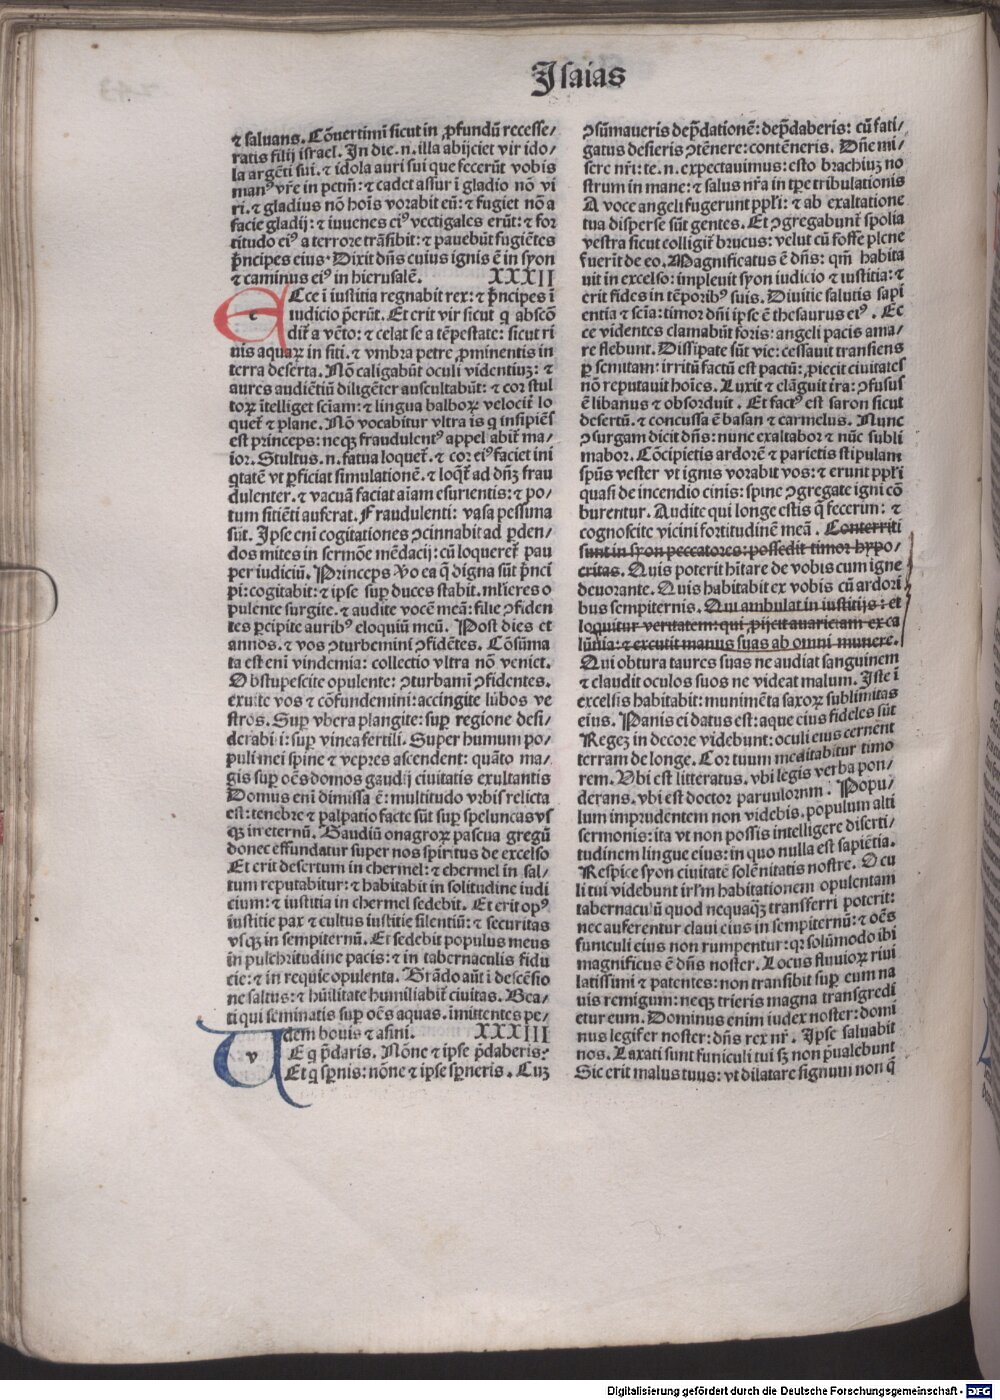 Isaias
⁊ saluans. Cõuertimĩ sicut in ꝓfundũ recesse/
ratis filij israel. In die .n. illa abijciet vir ido/
la argẽti sui. ⁊ idola auri sui que fecerũt vobis
manꝰ vr̃e in pctm̃: ⁊ cadet assur ĩ gladio nõ vi
ri. ⁊ gladius nõ hoĩs vorabit eũ: ⁊ fugiet nõ a
facie gladij: ⁊ iuuenes eiꝰ vectigales erũt: ⁊ for
titudo eiꝰ a terrore trãsibit: ⁊ pauebũt fugiẽtes
p̃ncipes eius. Dixit dñs cuius ignis ẽ in syon
⁊ caminus eiꝰ in hierusalẽ. XXXII
e Cce ĩ iustitia regnabit rex: ⁊ p̃ncipes ĩ
iudicio p̃erũt. Et erit vir sicut q̇ abscõ
dit̃ a vẽto: ⁊ celat se a tẽpestate: sicut ri
uis aquaꝝ in siti. ⁊ vmbra petre ꝓminentis in
terra deserta. Nõ caligabũt oculi videntiuꝫ: ⁊
aures audiẽtiũ diligẽter auscultabũt: ⁊ cor stul
toꝝ ĩtelliget sciam: ⁊ lingua balboꝝ velocit̃ lo
quet̃ ⁊ plane. Nõ vocabitur vltra is q̇ insipiẽs
est princeps: neqꝫ fraudulentꝰ appel abit̃ ma/
ior. Stultus .n. fatua loquet̃. ⁊ cor eiꝰ faciet ini
q̇tatẽ vt ꝑficiat simulationẽ. ⁊ loq̃t̃ ad dñꝫ frau
dulenter. ⁊ vacuã faciat aĩam esurientis: ⁊ po/
tum sitiẽti auferat. Fraudulenti: vasa pessima
sũt. Ipse eni cogitationes ꝯcinnabit ad ꝑden/
dos mites in sermõe mẽdacij: cũ loqueret̃ pau
per iudiciũ. Princeps ꝟo ea q̃ digna sũt p̃nci
pi: cogitabit: ⁊ ipse suꝑ duces stabit. ml̃ieres o
pulente surgite. ⁊ audite vocẽ meã: filie ꝯfiden
tes ꝑcipite auribꝰ eloquiũ meũ. Post dies et
annos. ⁊ vos ꝯturbemini ꝯfidẽtes. Cõsũma
ta est eni vindemia: collectio vltra nõ veniet.
Obstupescite opulente: ꝯturbamĩ ꝯfidentes.
exuite vos ⁊ cõfundemini: accingite lũbos ve
stros. Suꝑ vbera plangite: suꝑ regione desi/
derabi i: suꝑ vinea fertili. Super humum po/
puli mei spine ⁊ vepres ascendent: quãto ma/
gis suꝑ oẽs domos gaudij ciuitatis exultantis
Domus enĩ dimissa ẽ: multitudo vrbis relicta
est: tenebre ⁊ palpatio facte sũt suꝑ speluncas vs
qꝫ in eternũ. Gaudiũ onagroꝝ pascua gregũ
donec effundatur super nos spiritus de excelso
Et erit desertum in chermel: ⁊ chermel in sal/
tum reputabitur: ⁊ habitabit in solitudine iudi
cium: ⁊ iustitia in chermel sedebit. Et erit opꝰ
iustitie pax ⁊ cultus iustitie silentiũ: ⁊ securitas
vsqꝫ in sempiternũ. Et sedebit populus meus
in pulchritudine pacis: ⁊ in tabernaculis fidu
cie: ⁊ in requie opulenta. Grãdo aũt ĩ descẽsio
ne saltus: ⁊ hũilitate humiliabit̃ ciuitas. Bea/
ti qui seminatis suꝑ oẽs aquas. imittentes pe/
dem bouis ⁊ asini. XXXIII
v E q̇ p̃daris. Nõne ⁊ ipse p̃daberis?
Et q̇ sꝑnis: nõne ⁊ ipse sꝑneris. Cuꝫ
ꝯsũmaueris dep̃dationẽ: dep̃daberis: cũ fati/
gatus desieris ꝯtẽnere: contẽneris. Dñe mi/
sere nr̃i: te .n. expectauimus: esto brachiuꝫ no
strum in mane: ⁊ salus nr̃a in tp̃e tribulationis
A voce angeli fugerunt ppl̃i: ⁊ ab exaltatione
tua disperse sũt gentes. Et ꝯgregabunt̃ spolia
vestra sicut colligit̃ brucus: velut cũ fosse plene
fuerit de eo. Magnificatus ẽ dñs: qm̃ habita
uit in excelso: impleuit syon iudicio ⁊ iustitia: ⁊
erit fides in tẽporibꝰ suis. Diuitie salutis sapi
entia ⁊ scia: timor dñi ipse ẽ thesaurus eiꝰ. Ec
ce videntes clamabũt foris: angeli pacis ama/
re flebunt. Dissipate sũt vie: cessauit transiens
ꝑ semitam: irritũ factũ est pactũ: ꝓiecit ciuitates
nõ reputauit hoĩes. Luxit ⁊ elãguit t̃ra: ꝯfusus
ẽ libanus ⁊ obsorduit. Et factꝰ est saron sicut
desertũ. ⁊ concussa ẽ basan ⁊ carmelus. Nunc
ꝯsurgam dicit dñs: nunc exaltabor ⁊ nũc subli
mabor. Cõcipietis ardorẽ ⁊ parietis stipulam
spũs vester vt ignis vorabit vos: ⁊ erunt ppl̃i
quasi de incendio cinis: spine ꝯgregate igni cõ
burentur. Audite qui longe estis q̃ fecerim: ⁊
cognoscite vicini fortitudinẽ meã. Conterriti
sunt in syon peccatores: possedit timor hypo/
critas. Quis poterit hĩtare de vobis cum igne
deuorante. Quis habitabit ex vobis cũ ardori
bus sempiternis. Qui ambulat in iustitijs: et
loquitur veritatem: qui ꝓijcit auariciam ex ca
lũnia: ⁊ excutit manus suas ab omni munere.
Qui obtura taures suas ne audiat sanguinem
⁊ claudit oculos suos ne videat malum. Iste ĩ
excelsis habitabit: munimẽta saxoꝝ sublimitas
eius. Panis ei datus est: aque eius fideles sũt
Regeꝫ in decore videbunt: oculi eius cernent
terram de longe. Cor tuum meditabitur timo
rem. Vbi est litteratus. vbi legis verba pon/
derans. vbi est doctor paruulorum. Popu/
lum imprudentem non videbis. populum alti
sermonis: ita vt non possis intelligere diserti/
tudinem lingue eius: in quo nulla est sapiẽtia.
Respice syon ciuitatẽ solẽnitatis nostre. Ocu
li tui videbunt irl̃m habitationem opulentam
tabernacu ũ quod nequaqꝫ transferri poterit:
nec auferentur claui eius in sempiternũ: ⁊ oẽs
funiculi eius non rumpentur: qꝛ solũmodo ibi
magnificus ẽ dñs noster. Locus fluuioꝝ riui
latissimi ⁊ patentes: non transibit suꝑ eum na
uis remigum: neqꝫ trieris magna transgredi
etur eum. Dominus enim iudex noster: domi
nus legifer noster: dñs rex nr̃. Ipse saluabit
nos. Laxati sunt funiculi tui sꝫ non p̃ualebunt
Sic erit malus tuus: vt dilatare signum non q̃
Digitalisierung gefördert durch die Deutsche Forschungsgemeinschaft - DFG